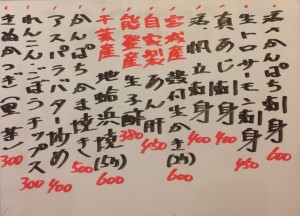 活〆かんぱち刺身 600
生トロサーモン刺身 450
真あじ刺身 400
活〆帆立刺身 400
宮城産 殻付生かき(2ヶ) 600
自家製 あん肝 450
能登産 生子酢 380
千葉産 地蛤浜焼(5ヶ) 600
かんぱちかま焼き 500
アスパラバター炒め 400
れんこんごぼうチップス 300
きぬかつぎ(里芋) 300